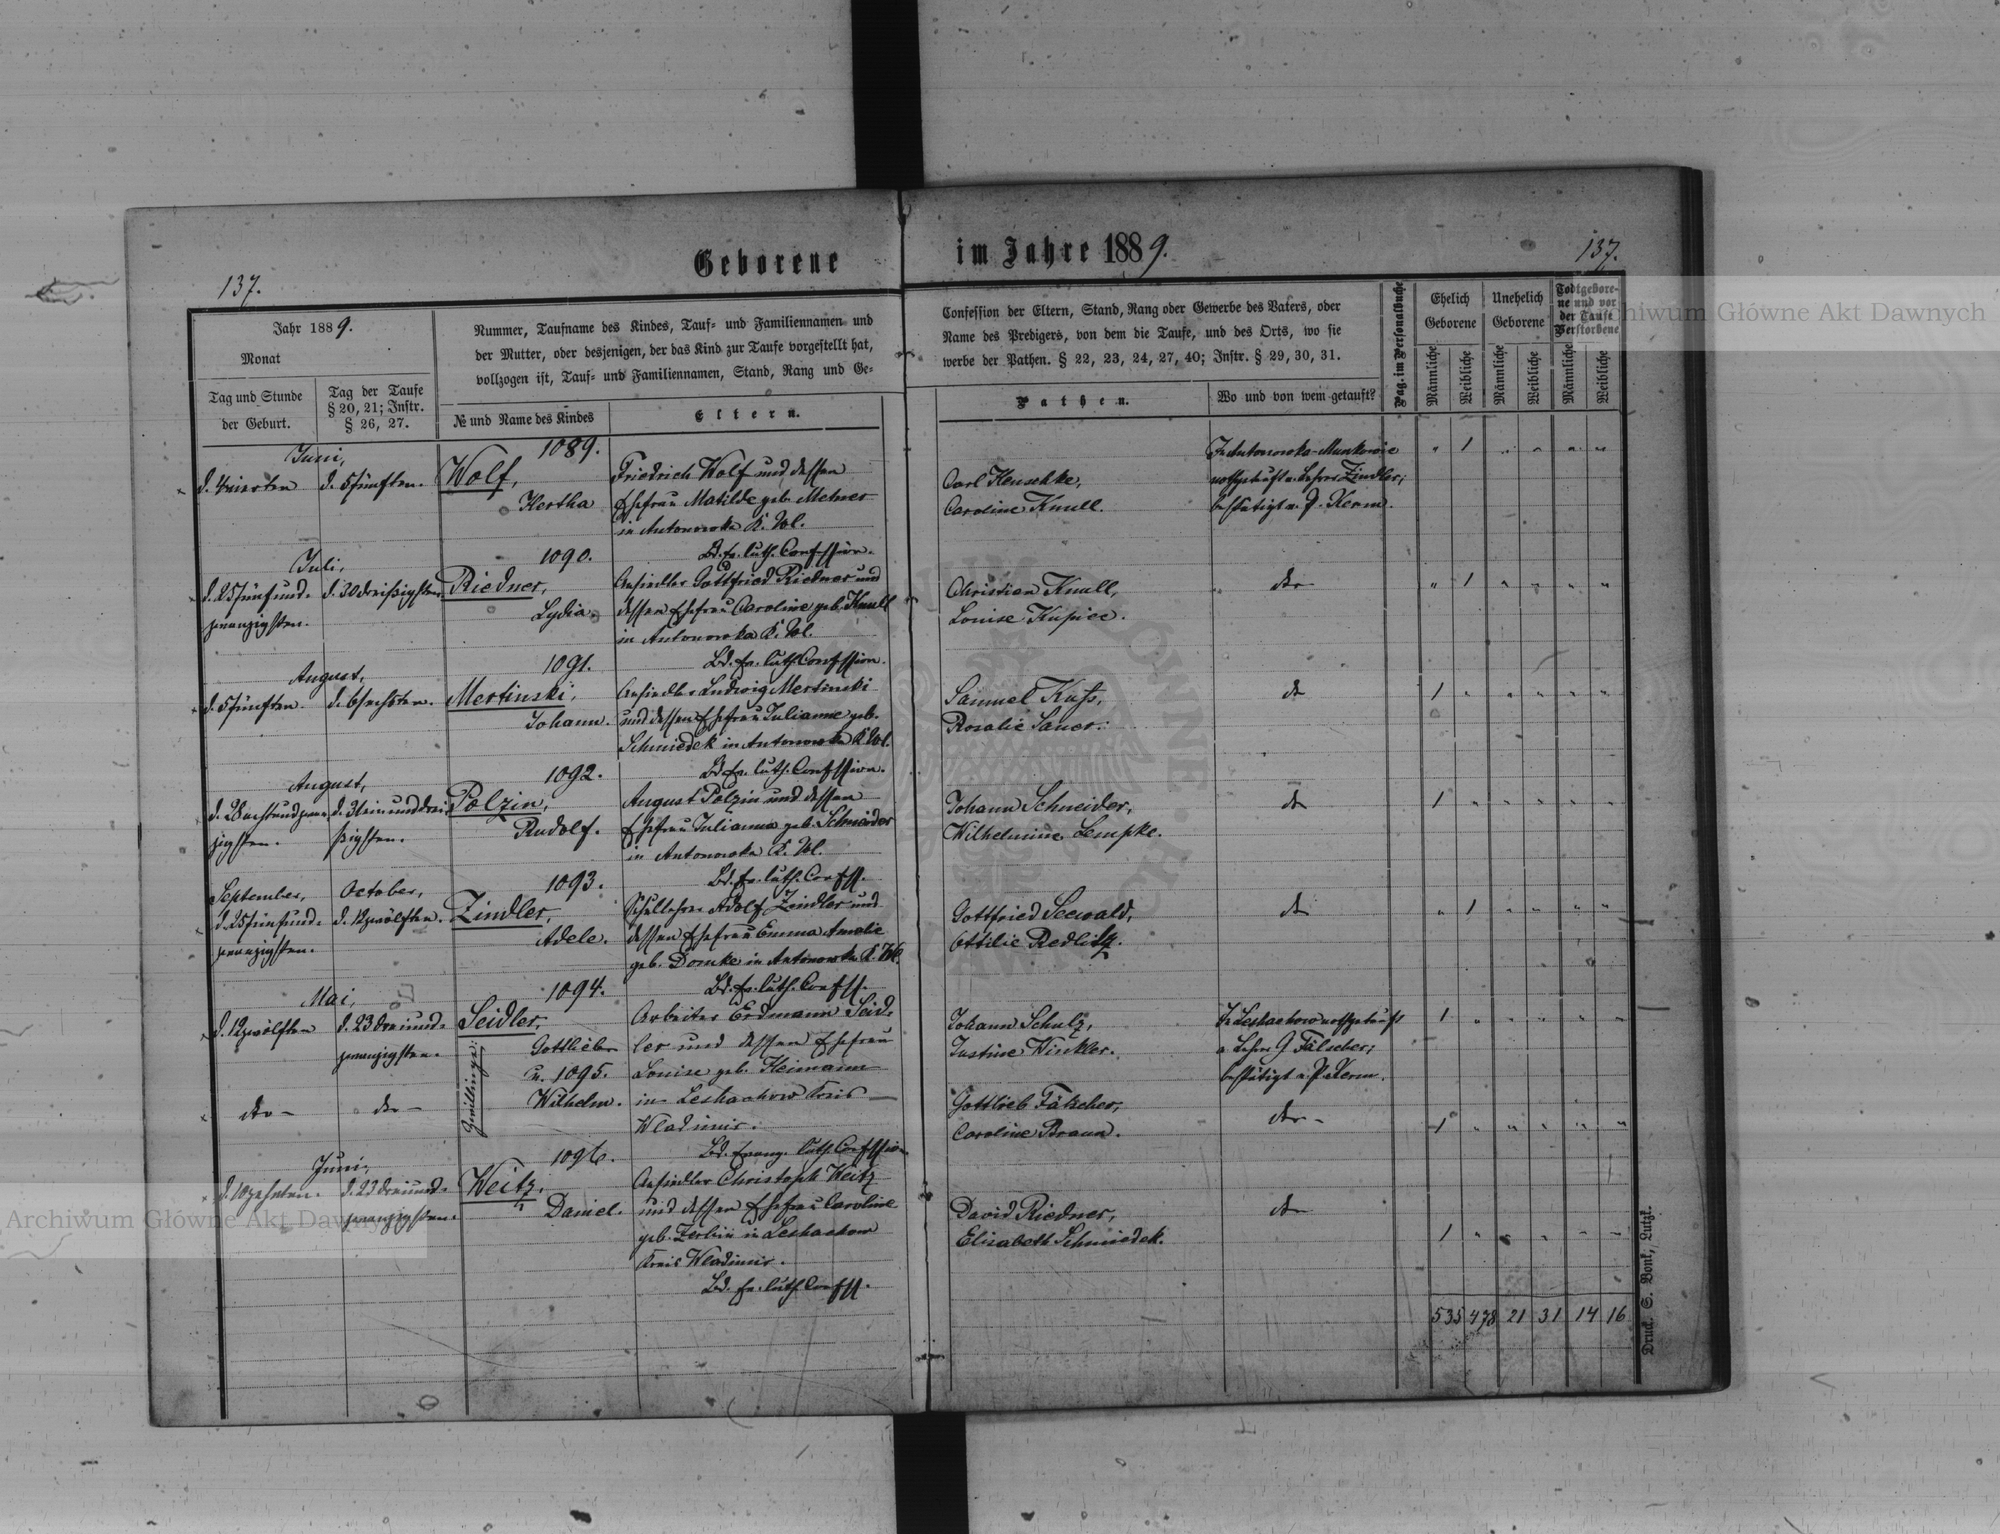 Geborene im Jahre 1889.
137.
137.
Jahr 1889.
Monat
Tag und Stunde
der Geburt.
Tag der Taufe
§ 20, 21; Instr.
§ 26, 27.
Nummer, Taufname des Kindes, Tauf- und Familiennamen und
der Mutter, oder desjenigen, der das Kind zur Taufe vorgestellt hat,
vollzogen ist, Tauf- und Familiennamen, Stand, Rang und Ge-
№ und Name des Kindes
Eltern.
Confession der Eltern, Stand, Rang oder Gewerbe des Vaters, oder
Name des Predigers, von dem die Taufe, und des Orts, wo sie
werbe der Pathen. § 22, 23, 24, 27, 40; Instr. § 29, 30, 31.
Pathen.
Wo und von wem getauft?
Pag. im Personalbuche
Ehelich
Geborene
Unehelich
Geborene
Todtgebore-
ne und vor
der Taufe
Verstorbene
Männliche
Weibliche
Männliche
Weibliche
Männliche
Weibliche
Juni,
d. 4 vierten
d. 5 fünften.
1089.
Wolf,
Hertha
Friedrich Wolf und dessen
Ehefrau Matilde geb. Metner
in Antonowka K. Wl.
Bd. ev. luth. Confession.
Carl Henschke,
Caroline Knull.
In Antonowka-Munkowie
nothgetauft v. Lehrer Zindler;
bestätigt v. P. Kerm.
" 1 " " " "
Juli,
d. 25 fünfund-
zwanzigsten.
d. 30 dreißigsten
1090.
Riedner,
Lydia.
Ansiedler Gottfried Riedner und
dessen Ehefrau Caroline geb. Knull
in Antonowka K. Wl.
Bd. ev. luth. Confession.
Christian Knull,
Louise Kupice.
dto
" 1 " " " "
August,
d. 5 fünften.
d. 6 sechsten.
1091.
Mertinski,
Johann.
Ansiedler Ludwig Mertinski
und dessen Ehefrau Julianne geb.
Schmiedek in Antonowka K. Wl.
Bd. ev. luth. Confession.
Samuel Kuß,
Rosalie Sauer.
dto
1 " " " " "
August,
d. 28 achtundzwan-
zigsten.
d. 31 einunddrei-
ßigsten.
1092.
Polzin,
Rudolf.
August Polzin und dessen
Ehefrau Julianna geb. Schneider
in Antonowka K. Wl.
Bd. ev. luth. Confess.
Johann Schneider,
Wilhelmine Lempke.
dto
1 " " " " "
September,
d. 25 fünfund-
zwanzigsten.
October,
d. 12 zwölften.
1093.
Zindler,
Adele.
Schullehrer Adolf Zeindler und
dessen Ehefrau Emma Amalie
geb. Domke in Antonowka K. Wl.
Bd. ev. luth. Confess.
Gottfried Seewald,
Ottilie Redlitz.
dto
" 1 " " " "
Mai,
d. 12 zwölften
d. 23 dreiund-
zwanzigsten.
1094.
Seidler,
Gottlieb
u. 1095.
Wilhelm.
Zwillinge:
Arbeiter Erdmann Seid-
ler und dessen Ehefrau
Louise geb. Heimann
in Leshachow Kreis
Wladimir.
Bd. evang. luth. Confession.
Johann Schulz,
Justine Winkler.
In Leshachow nothgetauft
v. Lehrer G Fälscher;
bestätigt v. P. Kerm.
1 " " " " "
dto -
dto -
Gottlieb Fälscher,
Caroline Braun.
dto -
1 " " " " "
Juni,
d. 10 zehnten.
d. 23 dreiund-
zwanzigsten.
1096.
Weitz,
Daniel.
Ansiedler Christoph Weitz
und dessen Ehefrau Caroline
geb. Zerbin in Leshachow
Kreis Wladimir.
Bd. ev. luth. Confess.
David Riedner,
Elisabeth Schmiedek.
dto
1 " " " " "
535 478 21 31 14 16
Druck. S. Bonk, Lutzk.
Archiwum Główne Akt Dawnych
Archiwum Główne Akt Dawnych